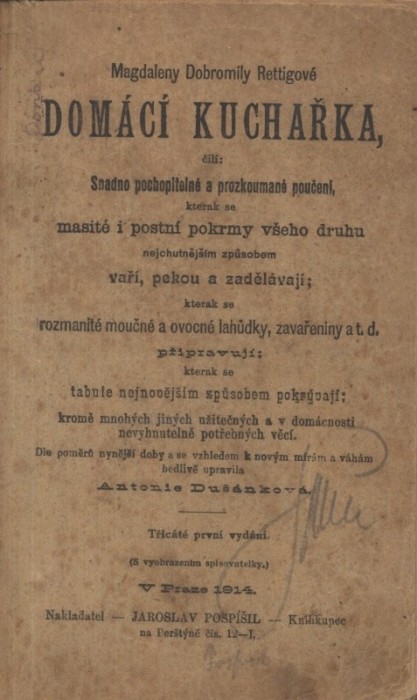 Magdaleny Dobromily Rettigové
DOMÁCÍ KUCHAŘKA,
čili:
Snadno pochopitelné a prozkoumané poučení,
kterak se
masité i postní pokrmy všeho druhu
nejchutnějším způsobem
vaří, pekou a zadělávají;
kterak se
rozmanité moučné a ovocné lahůdky, zavařeniny a t. d.
připravují;
kterak se
tabule nejnovějším způsobem pokrývají;
kromě mnohých jiných užitečných a v domácnosti
nevyhnutelně potřebných věcí.
Dle poměrů nynější doby a se vzhledem k novým mírám a váhám
bedlivě upravila
Antonie Dušánková.
Třicáté první vydání.
(S vyobrazením spisovatelky.)
V Praze 1914.
Nakladatel — JAROSLAV POSPÍŠIL — Knihkupec
na Perštýně čís. 12—I.